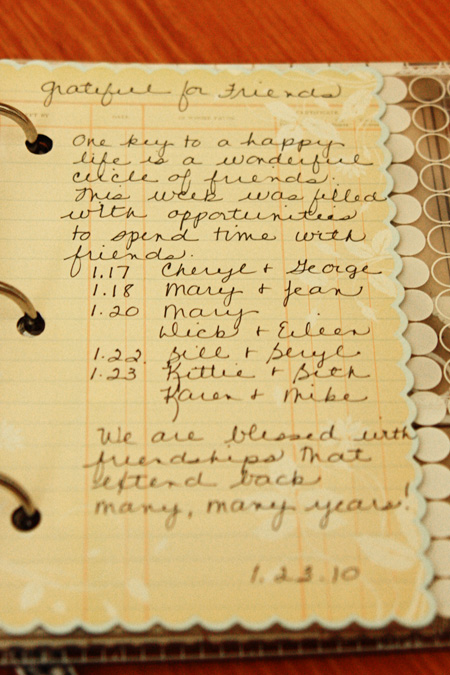 Grateful for Friends
One key to a happy
life is a wonderful
circle of friends.
This week was filled
with opportunities
to spend time with
friends.
1.17 Cheryl + George
1.18 Mary + Jean
1.20 Mary
Dick + Eileen
1.22 Bill + Beryl
1.23 Kittie + Bith
Karen + Mike
We are blessed with
friendships that
extend back
many, many years!
1.23.10